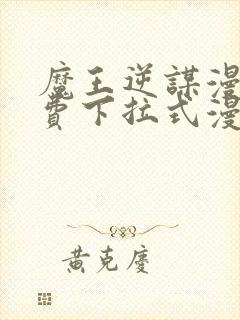 魔王逆謀漫
費下拉式漫
黃克慶